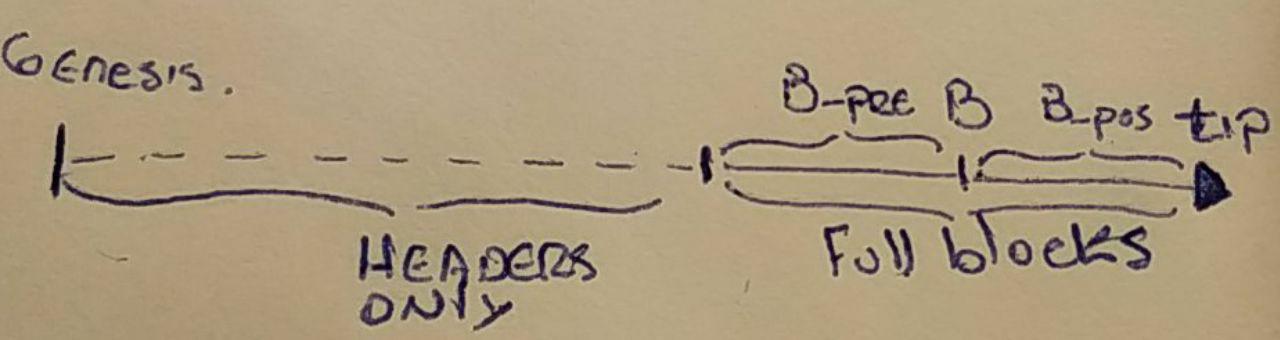 Genesis.
B-pre B B-pos tip
HEADERS
ONLY
Full blocks